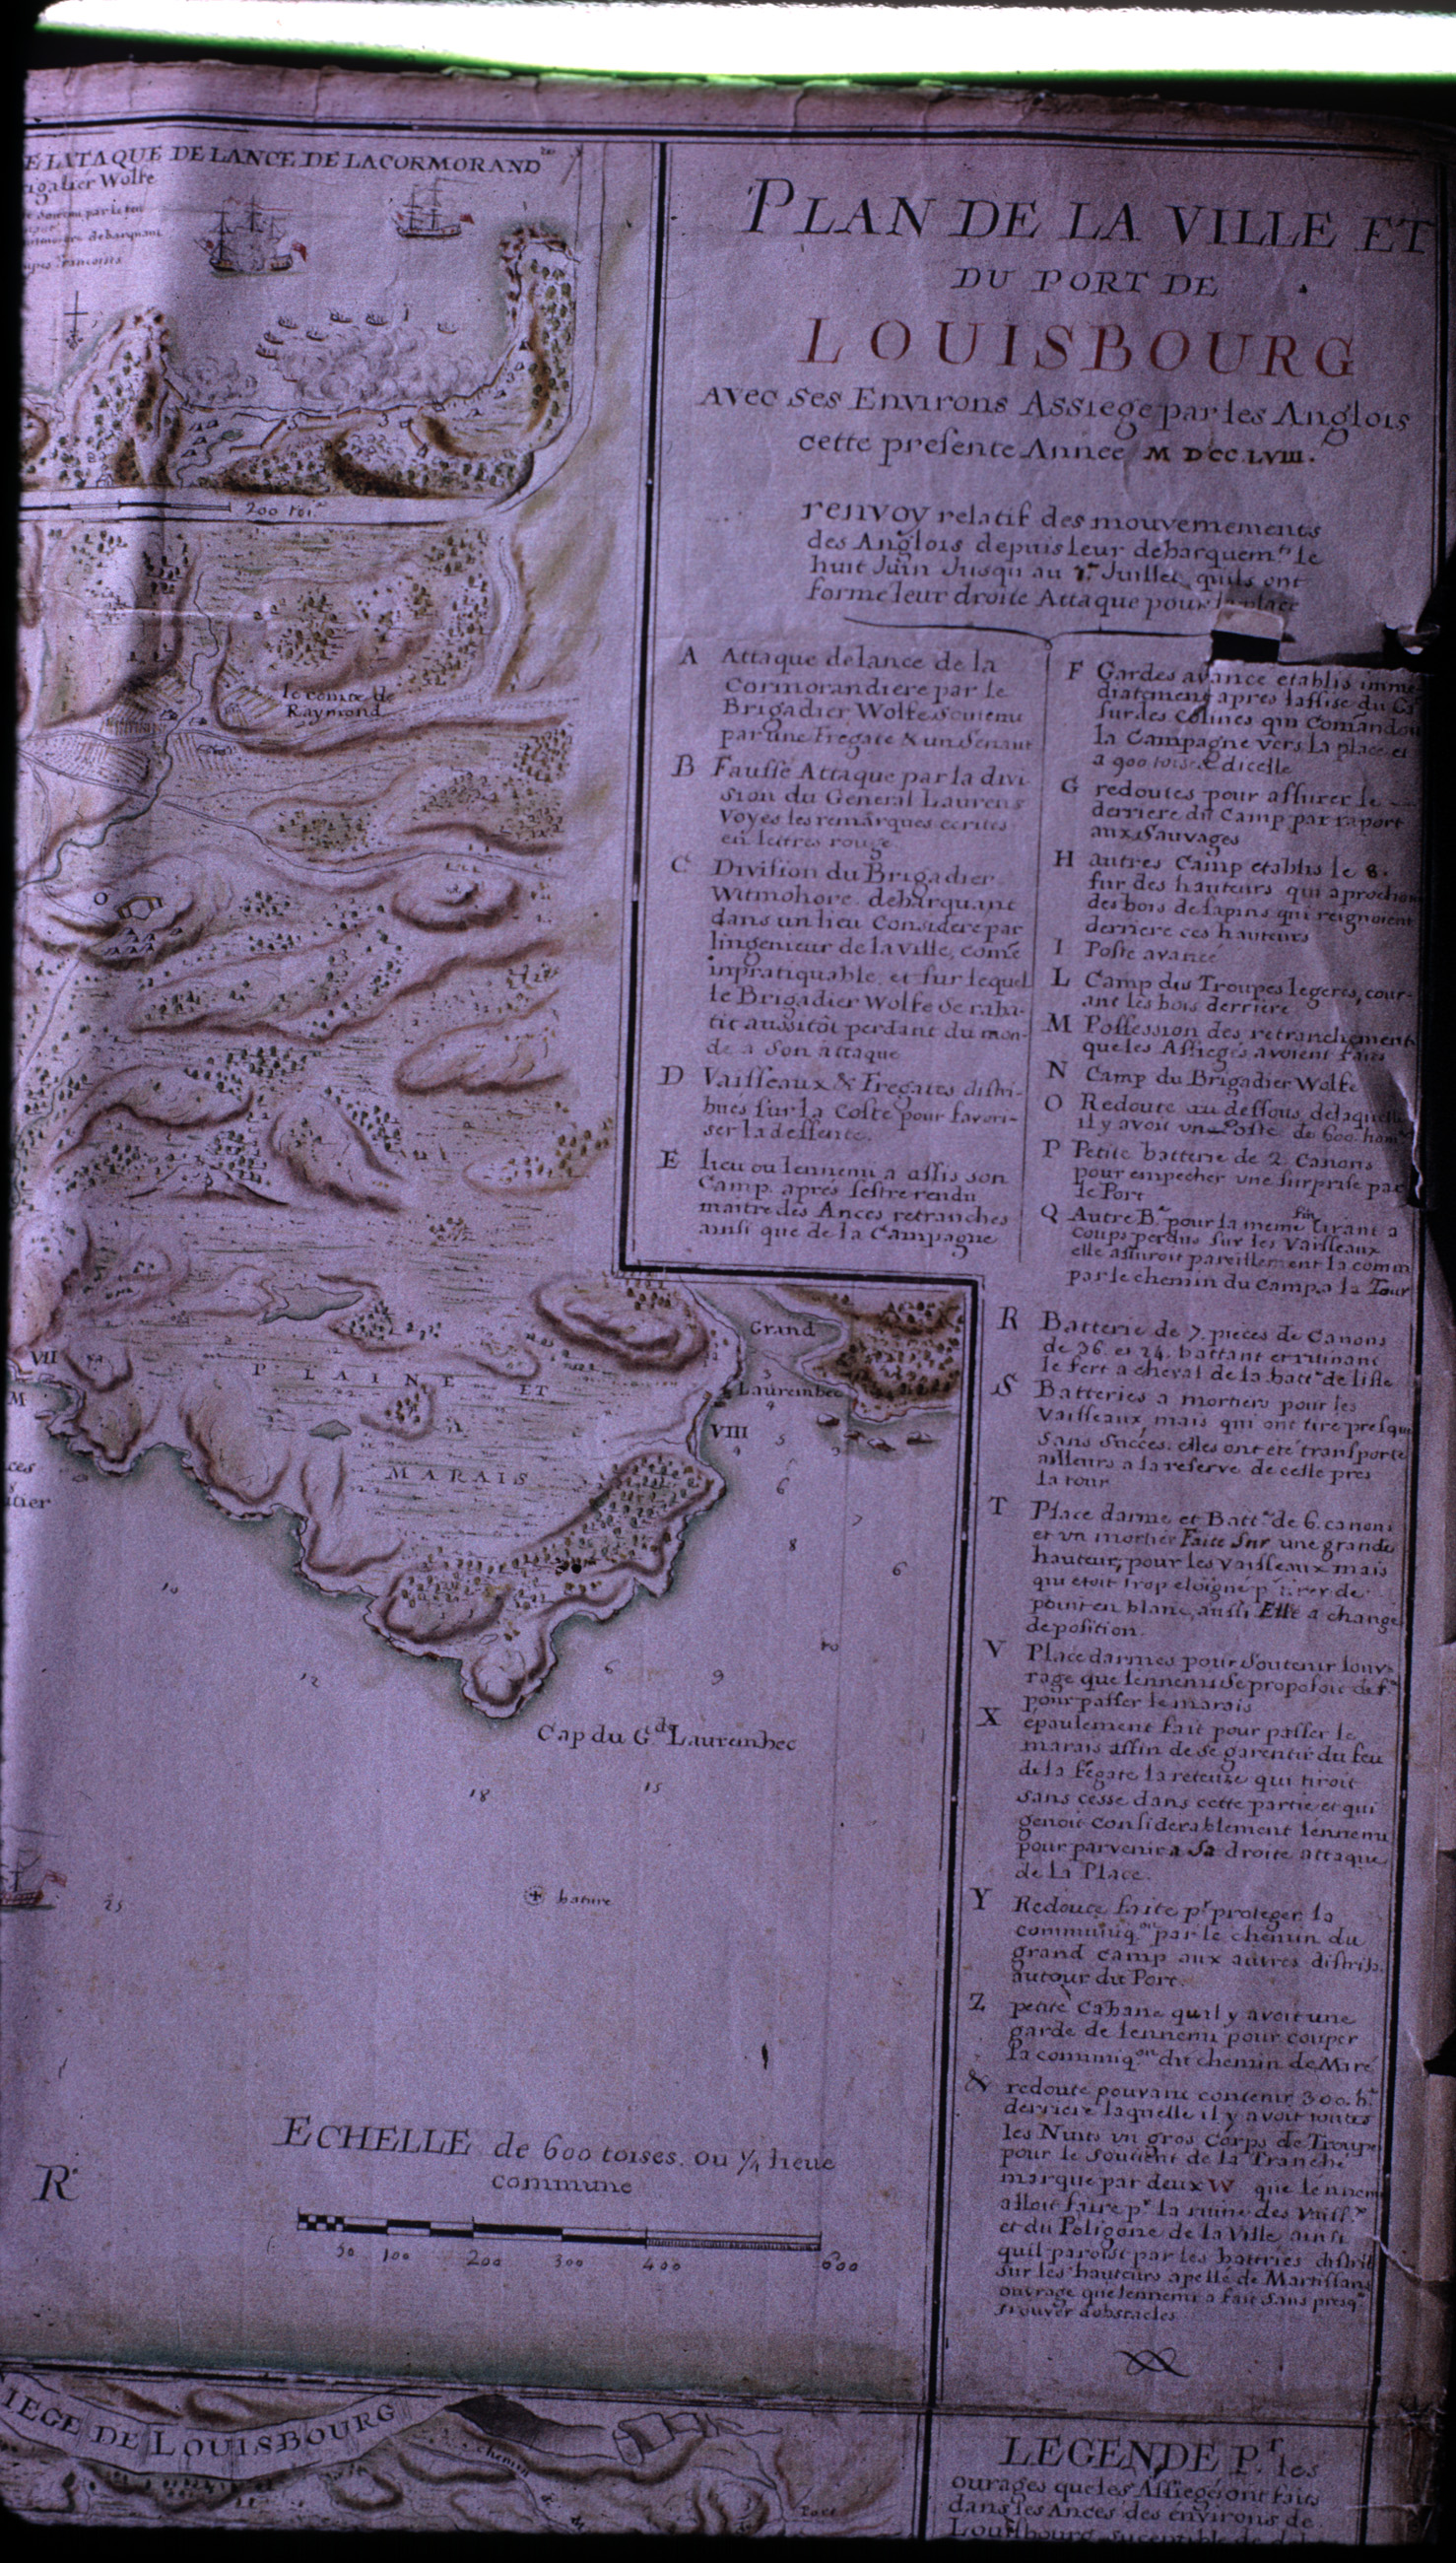 E LATAQUE DE LANCE DE LACORMORAND
rigalier Wolfe
200 toi.
le comte de
Raymond
O
VII
M
PLAINE ET
MARAIS
Grand
Laurembec
VIII
3
4
5
6
7
8
6
9
6
10
12
15
18
25
Cap du G.de Laurembec
bature
R.
ECHELLE de 600 toises. ou ¼ lieue
commune
50 100 200 300 400 600
IEGE DE LOUISBOURG
chemin
PLAN DE LA VILLE ET
DU PORT DE
LOUISBOURG
Avec Ses Environs Assiege par les Anglois
cette presente Année M DCC LVIII.
renvoy relatif des mouvemements
des Anglois depuis leur debarquem.t le
huit Juin Jusqu au Juillet quils ont
formé leur droite Attaque pour la place
A Attaque delance de la
Cormorandiere par le
Brigadier Wolfe Soutenu
par une Fregate & un Senaut
B Fausse Attaque par la divi-
sion du General Laurens
Voyés les remarques ecrites
en lettres rouge
C Division du Brigadier
Witmohore debarquant
dans un lieu Considere par
lingenieur de la ville, comé
inpratiquable et sur lequel
le Brigadier Wolfe Se raba-
tit aussitôt perdant du mon-
de a Son attaque
D Vaisseaux & Fregates distri-
bues sur la Coste pour favori-
ser la dessente.
E lieu ou lennemi a assis son
Camp après sestre rendu
maitre des Ances retranches
ainsi que de la Campagne
F Gardes avance etablis imme-
diatement apres lassise du C
sur des Colines qui Comandou
la Campagne vers la place et
a 900 toises dicelle
G redoutes pour assurer le
derriere du Camp par raport
aux Sauvages
H autres Camp etablis le 8.
sur des hauteurs qui aprochou
des bois de sapins qui reignoient
derriere ces hauteurs
I Poste avancé
L Camp des Troupes legeres, cour-
ant les bois derriere
M Possession des retranchement
que les Assiegés avoient faits
N Camp du Brigadier Wolfe
O Redoute au dessous delaquelle
il y avoit un Poste de 600 hom
P Petite batterie de 2 Canons
pour empecher une surprise par
le Port
Q Autre B.e pour la meme fin tirant a
coups perdus sur les Vaisseaux
elle assuroit pareillement la comm
par le chemin du Camp a la Tour
R Batterie de 7. pieces de Canons
de 36. et 24. battant et ruinant
le fert a cheval de la batt.e de lisle
S Batteries a mortiers pour les
Vaisseaux, mais qui ont tiré presque
sans succès. elles ont eté transporté
ailleurs a la reserve de celle pres
la tour
T Place darme et Batt.e de 6. canons
et un mortier Faite Sur une grande
hauteur, pour les vaisseaux mais
qui etoit trop eloigné p.r tirer de
point en blanc, aussi Elle a changé
de position.
V Place darmes pour Soutenir louv-
rage que lennemi Se proposoit de f.e
pour passer le marais
X épaulement fait pour passer le
marais assin de Se garentir du feu
de la Fegate lareteuze qui tiroit
sans cesse dans cette partie et qui
genoit considerablement lennemi
pour parvenir a Sa droite attaque
de La Place.
Y Redoute faite p.r proteger la
communiq.on par le chemin du
grand camp aux autres distrib.
autour du Port.
Z petite Cabane quil y avoit une
garde de lennemi pour couper
la comuniq.on du chemin de Miré
& redoute pouvant contenir 300. h.
derriere laquelle il y avoit toutes
les Nuits un gros Corps de Troupe
pour le soutient de la Tranché
marque par deux W que lennem
alloit faire p.r la ruine des Vaiss.x
et du Poligone de la Ville ainsi
quil paroist par les batteries distrib
sur les hauteurs apellé de Martissans
ouvrage que lennemi a fait sans presq.
trouver dobstacles
LEGENDE P.r les
ourages que les Assiegés ont faits
dans les Ances des environs de
Louisbourg